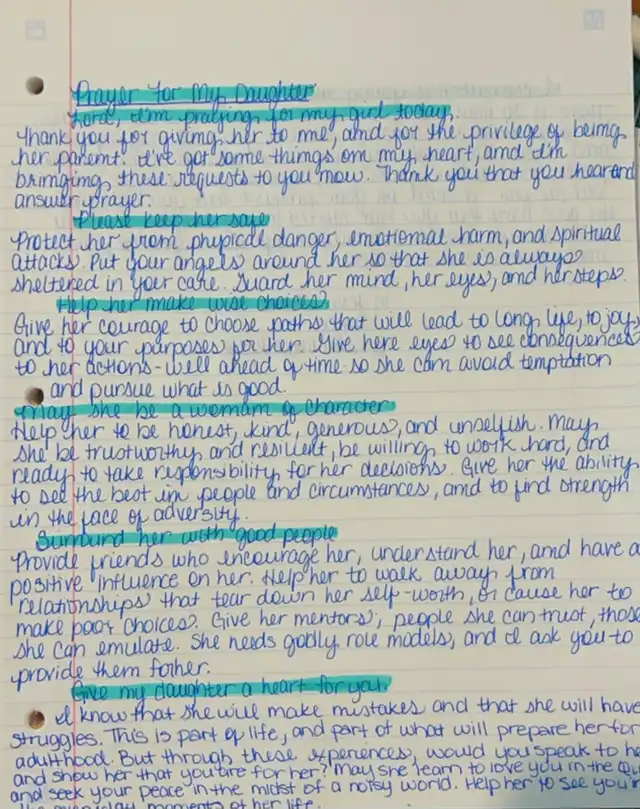 Prayer for My Daughter
Lord, I'm praying for my girl today.
Thank you for giving her to me, and for the privilege of being
her parent. I've got some things on my heart, and I'm
bringing these requests to you now. Thank you that you hear and
answer prayer.
Please keep her safe
Protect her from physical danger, emotional harm, and spiritual
attacks. Put your angels around her so that she is always
sheltered in your care. Guard her mind, her eyes, and her steps.
Help her make wise choices.
Give her courage to choose paths that will lead to long life, to joy,
and to your purposes for her. Give here eyes to see consequences
to her actions - well ahead of time so she can avoid temptation
and pursue what is good.
May she be a woman of character
Help her to be honest, kind, generous, and unselfish. May
she be trustworthy and resilient, be willing to work hard, and
ready to take responsibility for her decisions. Give her the ability
to see the best in people and circumstances, and to find strength
in the face of adversity.
Surround her with good people
Provide friends who encourage her, understand her, and have a
positive influence on her. Help her to walk away from
relationships that tear down her self-worth, or cause her to
make poor choices. Give her mentors, people she can trust, those
she can emulate. She needs godly role models, and I ask you to
provide them for her.
Give my daughter a heart for you.
I know that she will make mistakes and that she will have
struggles. This is part of life, and part of what will prepare her for
adulthood. But through these experiences, would you speak to he
and show her that you are for her? May she learn to love you in the
and seek your peace in the midst of a noisy world. Help her to see you
moments of her life.